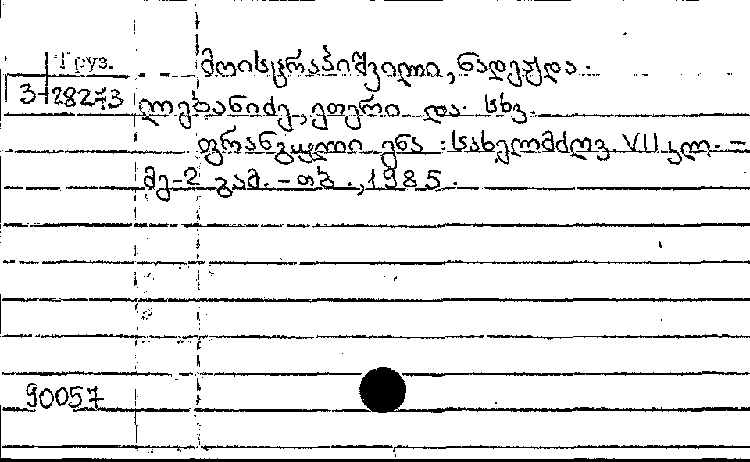 Груз.
3-28273
მოისწრაპიშვილი, ნადეჟდა.
ლებანიძე, ეთერი და სხვ.
ფრანგული ენა : სახელმძღვ. VII კლ. -
მე-2 გამ. - თბ., 1985.
90057